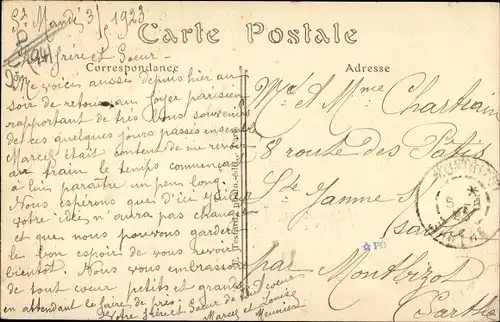 St Mandé 3/5 1923
Carte Postale
Correspondance
Adresse
Cher frère et Soeur
Me voici aussi depuis hier au
soir de retour au foyer parisien
rapportant de très bons souvenirs
de ces quelques jours passés ensemble
Marcel était content de me revoir
au train le temps commençait
à lui paraître un peu long.
Nous espérons que d'ici
votre idée n'aura pas changé
et que nous pouvons garder
le bon espoir de vous revoir
bientôt. Nous vous embrassons
de tout coeur petits et grands
en attendant le faire de près.
Votre frère et Soeur de tout coeur
Marcel et Louise
Meunier
Mr et Mme Chartrain
8 route des
Ste Jamme
Sarthe
par Montbizot
Sarthe
PB